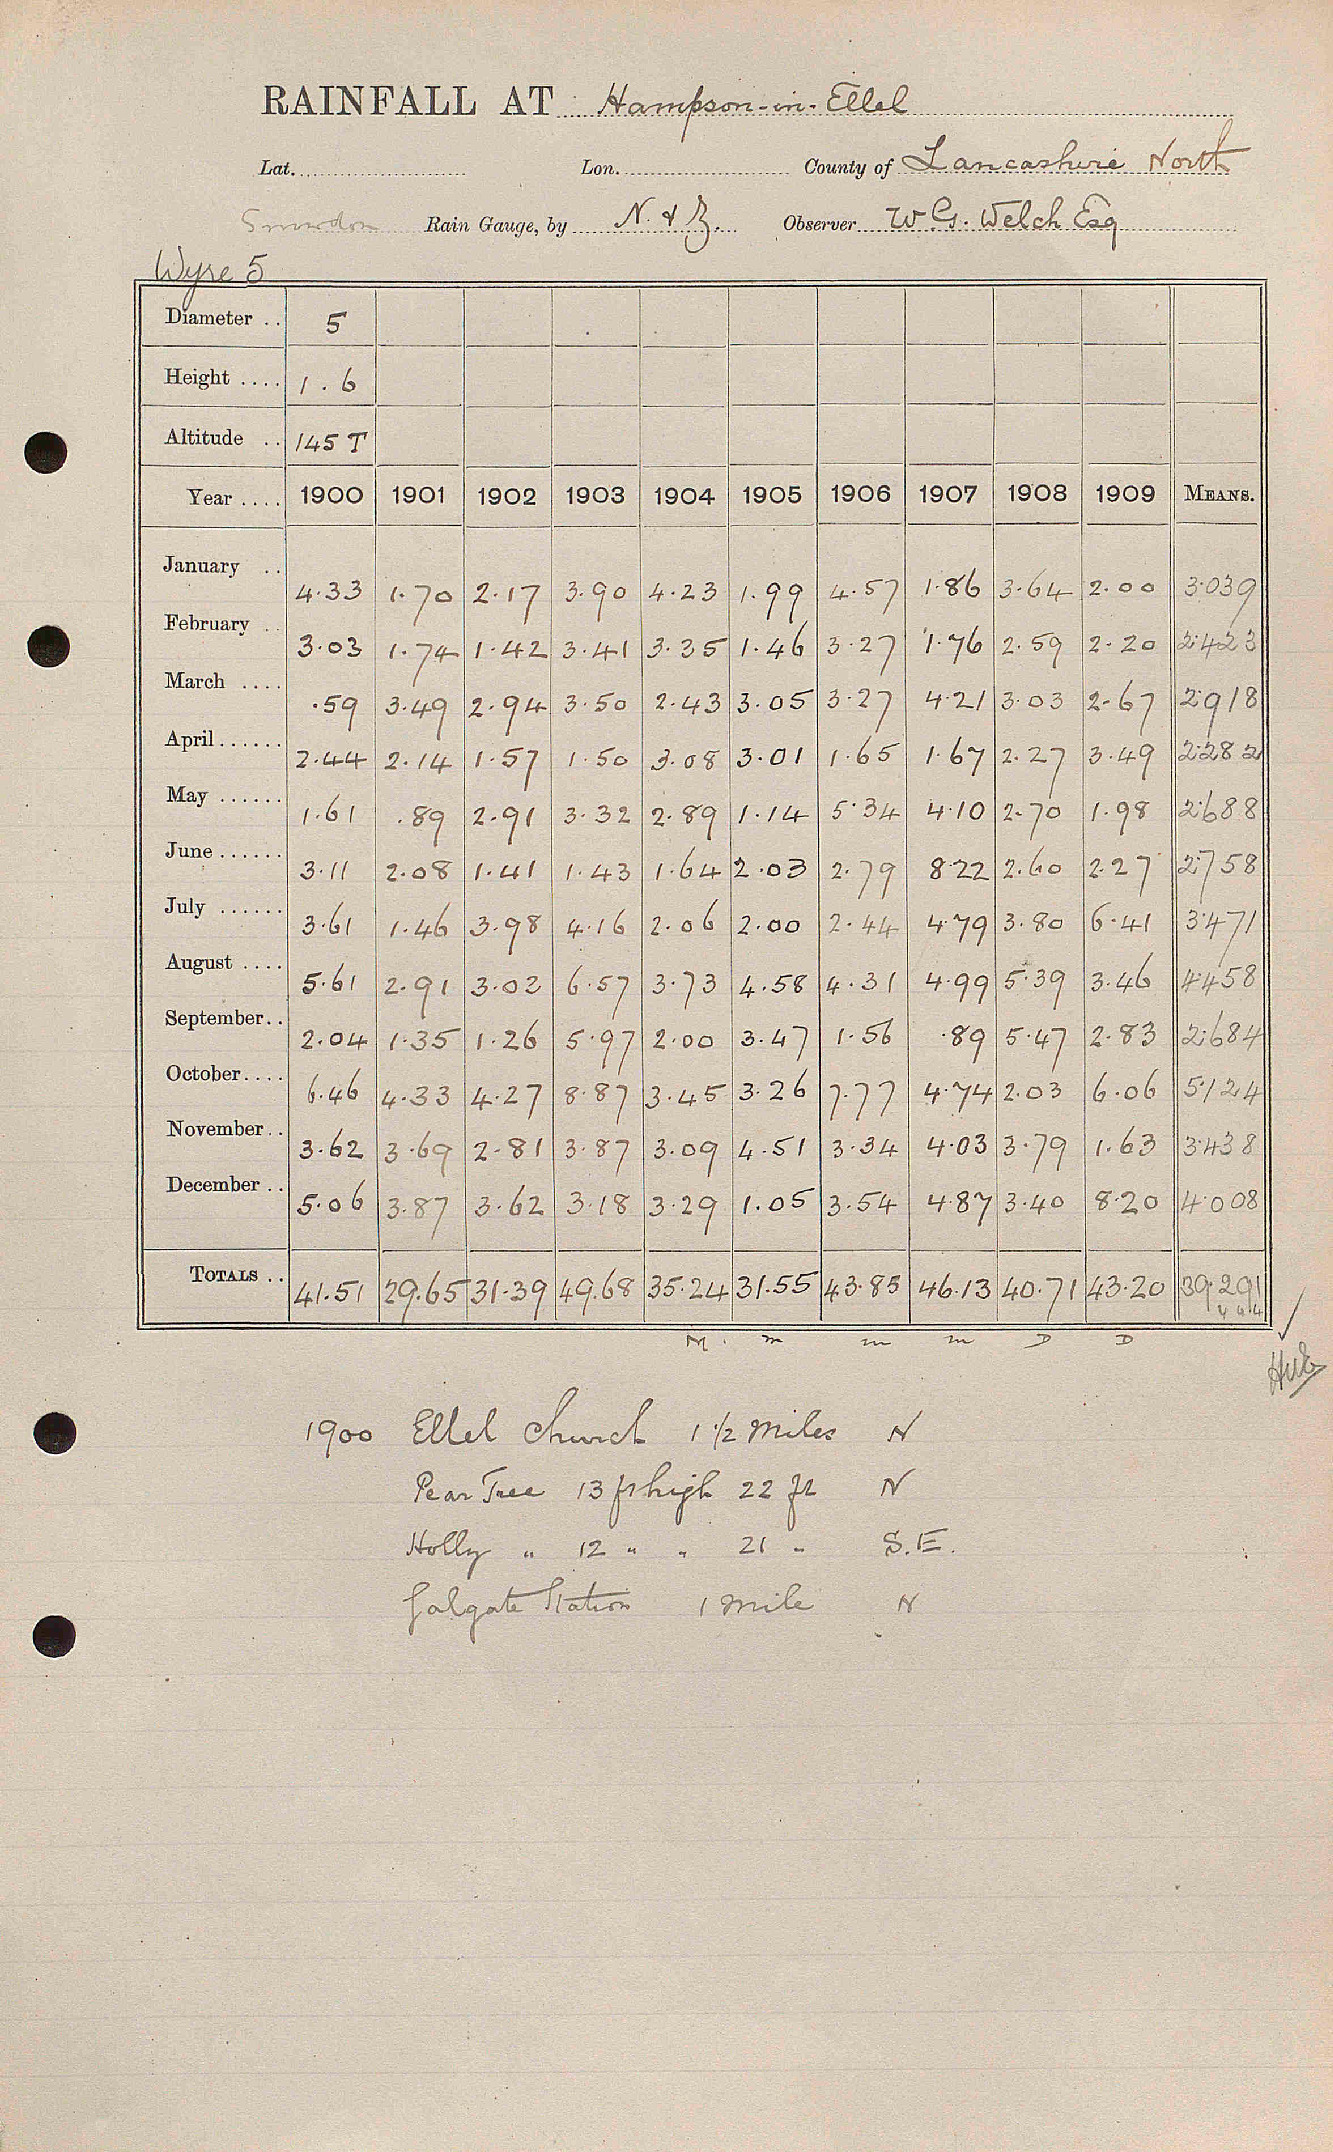 RAINFALL AT Hampson-in-Ellel
Lat. Lon. County of Lancashire North
Snowdon Rain Gauge, by N. & Z. Observer W. G. Welch Esq
Wyre 5
Diameter .. 5
Height .... 1.6
Altitude .. 145 T
Year .... 1900 1901 1902 1903 1904 1905 1906 1907 1908 1909 MEANS.
January .. 4.33 1.70 2.17 3.90 4.23 1.99 4.57 1.86 3.64 2.00 3.039
February .. 3.03 1.74 1.42 3.41 3.35 1.46 3.27 1.76 2.59 2.20 2.423
March .... .59 3.49 2.94 3.50 2.43 3.05 3.27 4.21 3.03 2.67 2.918
April ...... 2.44 2.14 1.57 1.50 3.08 3.01 1.65 1.67 2.27 3.49 2.282
May ...... 1.61 .89 2.91 3.32 2.89 1.14 5.34 4.10 2.70 1.98 2.688
June ...... 3.11 2.08 1.41 1.43 1.64 2.03 2.79 8.22 2.60 2.27 2.758
July ...... 3.61 1.46 3.98 4.16 2.06 2.00 2.44 4.79 3.80 6.41 3.471
August .... 5.61 2.91 3.03 6.57 3.73 4.58 4.31 4.99 5.39 3.46 4.458
September .. 2.04 1.35 1.26 5.97 2.00 3.47 1.56 .89 5.47 2.83 2.684
October .... 6.46 4.33 4.27 8.87 3.45 3.26 7.77 4.74 2.03 6.06 5.124
November .. 3.62 3.69 2.81 3.87 3.09 4.51 3.34 4.03 3.79 1.63 3.438
December .. 5.06 3.87 3.62 3.18 3.29 1.05 3.54 4.87 3.40 8.20 4.008
TOTALS .. 41.51 29.65 31.39 49.68 35.24 31.55 43.85 46.13 40.71 43.20 39.291
M. m m m D D
1900 Ellel Church 1 1/2 Miles N
Pear Tree 13 ft high 22 ft N
Holly " 12 " " 21 " S.E.
Galgate Station 1 Mile N